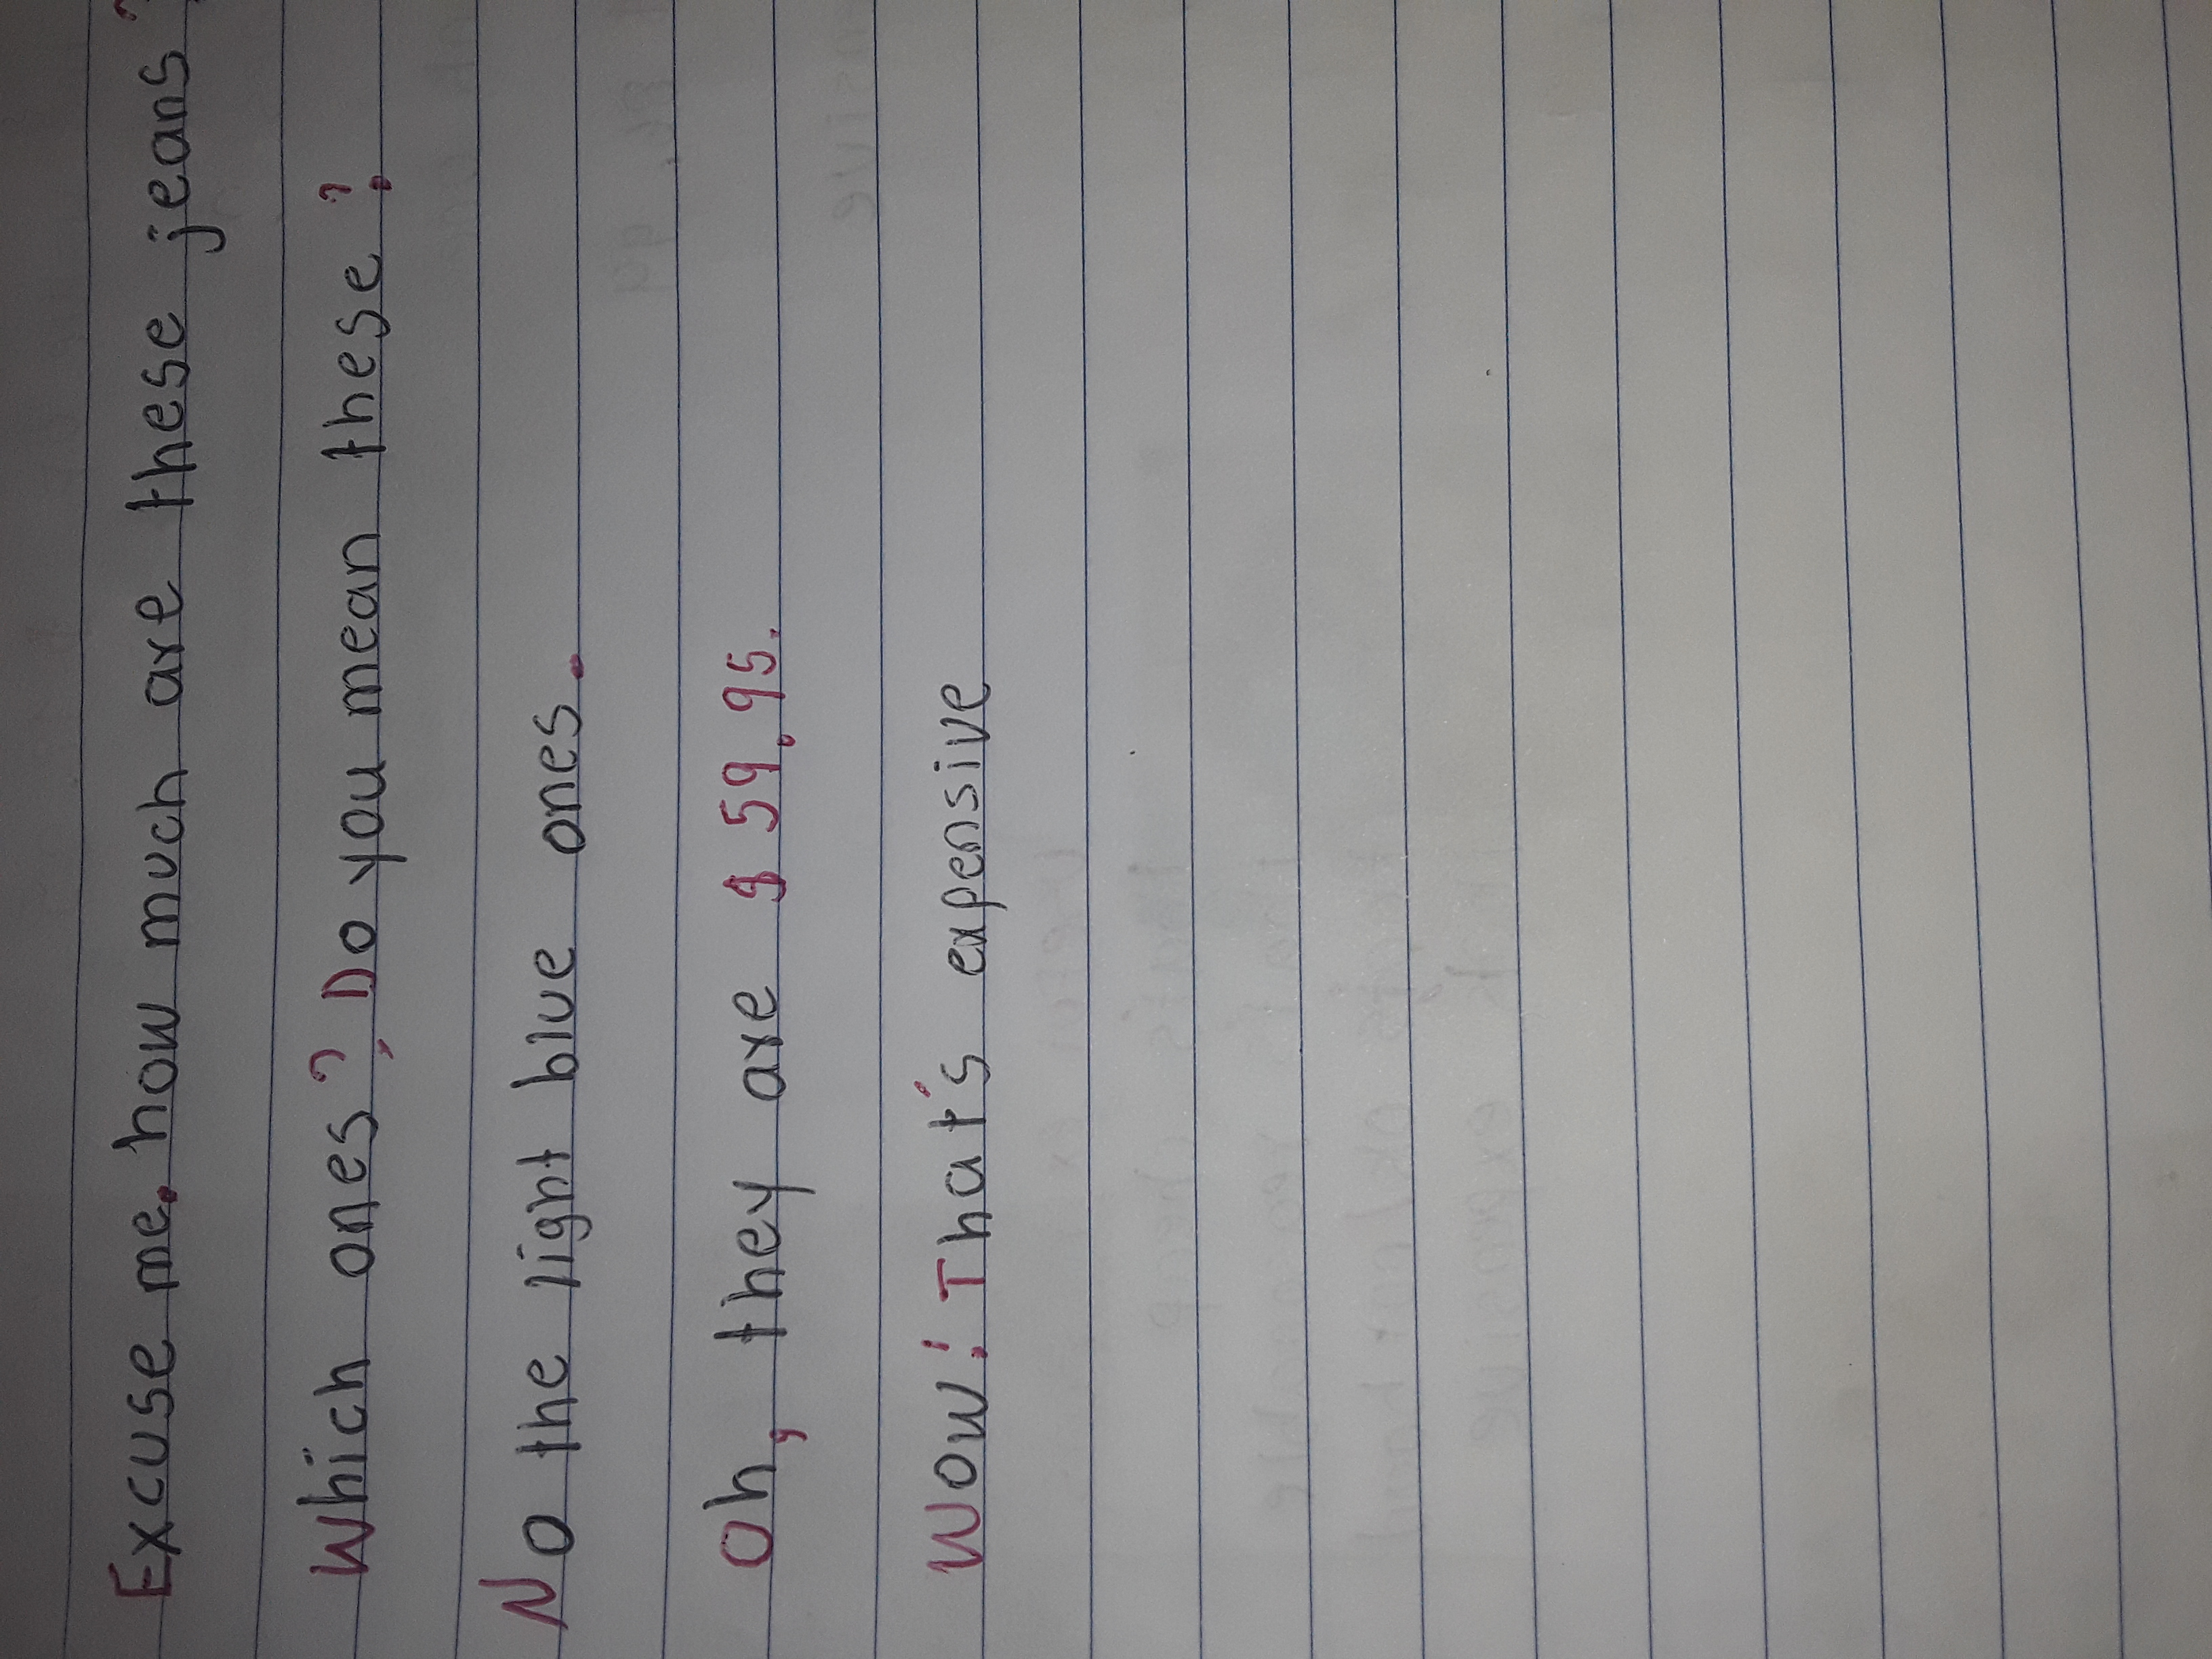 Excuse me. how much are these jeans?
Which ones? Do you mean these?
No the light blue ones.
Oh, they are $ 59.95.
Wow! That's expensive